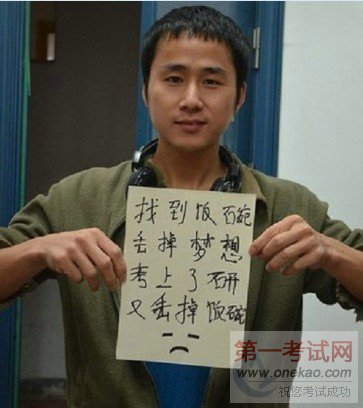 找到饭碗
丢掉梦想
考上了研
又丢掉饭碗
第一考试网
www.onekao.com
祝您考试成功